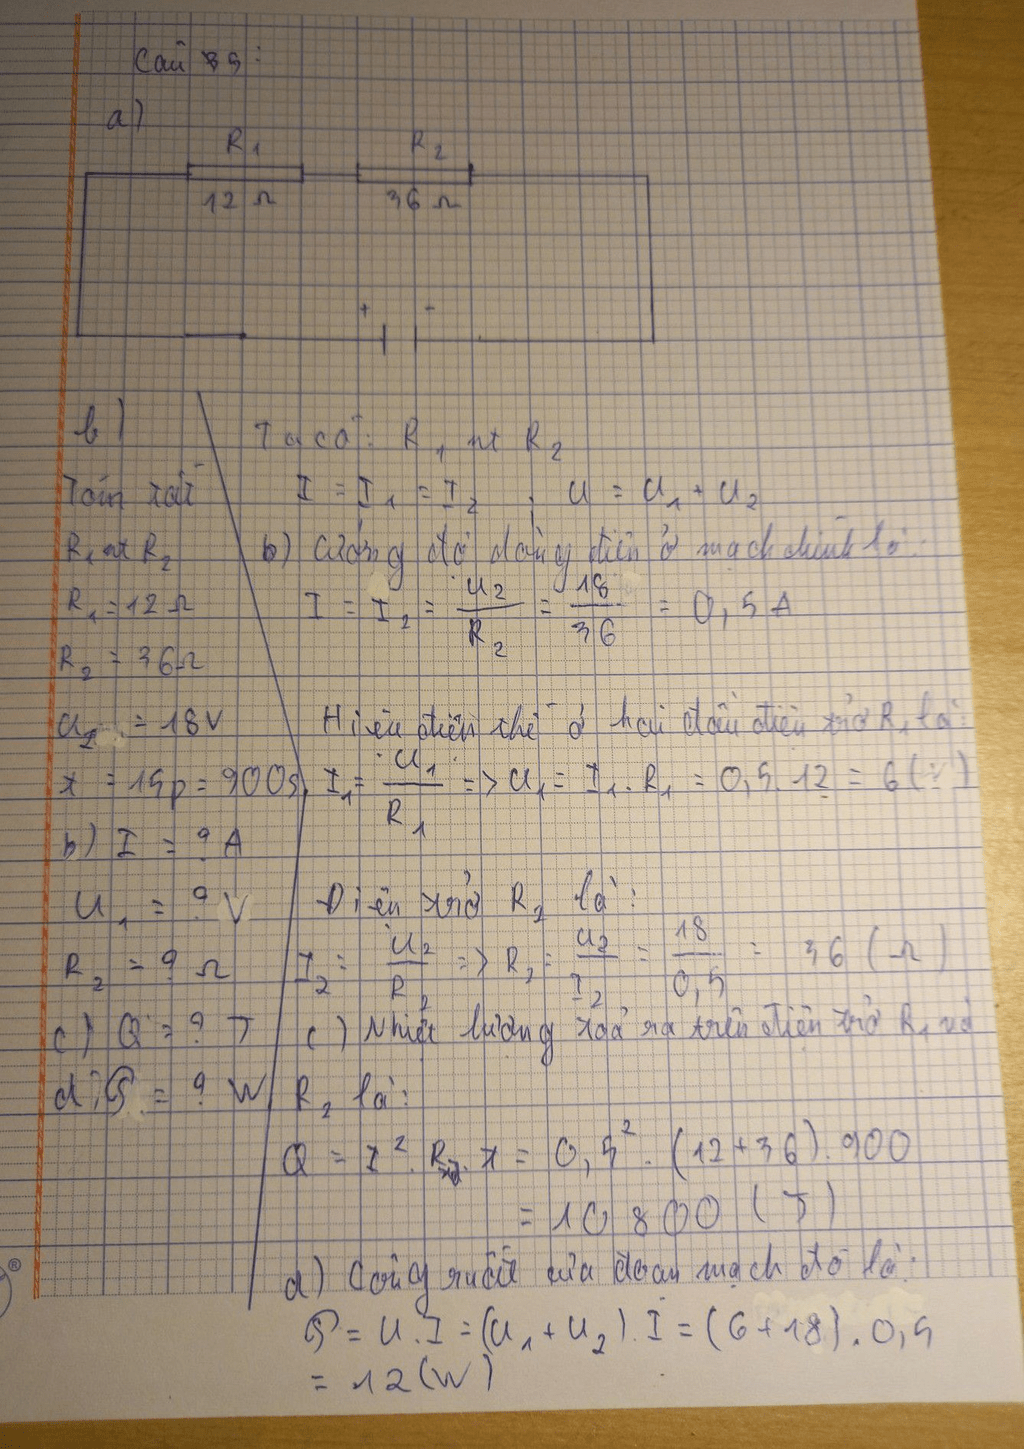 Câu 39:
a)
R1 R2
12 Ω 36 Ω
+ -
b)
Tóm tắt
R1 nt R2
R1 = 12 Ω
R2 = 36 Ω
U2 = 18 V
t = 15p = 900s
b) I = ? A
U1 = ? V
R2 = ? Ω
c) Q = ? J
d) P = ? W
Ta có: R1 nt R2
I = I1 = I2 , U = U1 + U2
b) Cường độ dòng điện ở mạch chính là:
I = I2 = U2/R2 = 18/36 = 0,5 A
Hiệu điện thế ở hai đầu điện trở R1 là:
I1 = U1/R1 => U1 = I1 . R1 = 0,5 . 12 = 6 (V)
Điện trở R2 là:
I2 = U2/R2 => R2 = U2/I2 = 18/0,5 = 36 (Ω)
c) Nhiệt lượng toả ra trên điện trở R1 và
R2 là:
Q = I². Rtđ. t = 0,5². (12+36). 900
= 10 800 (J)
d) Công suất của đoạn mạch đó là:
P = U.I = (U1 + U2). I = (6+18). 0,5
= 12 (W)
®